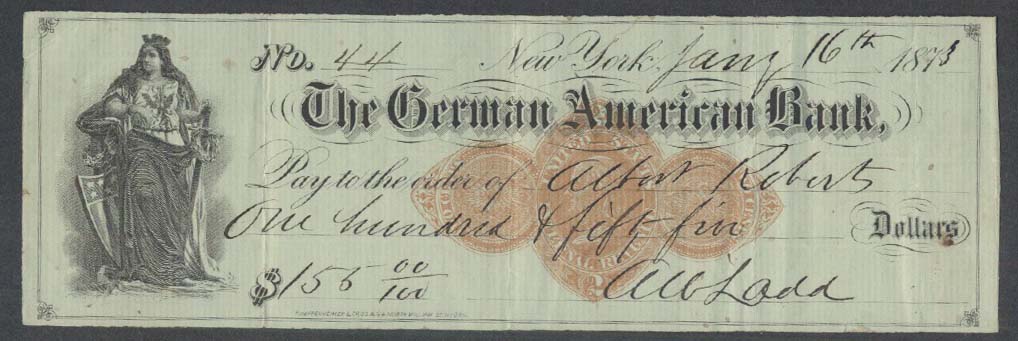 No. 44 New York Jany 16th 1873
The German American Bank,
Pay to the order of Albert Roberts
One hundred & fifty five Dollars
$155 00/100